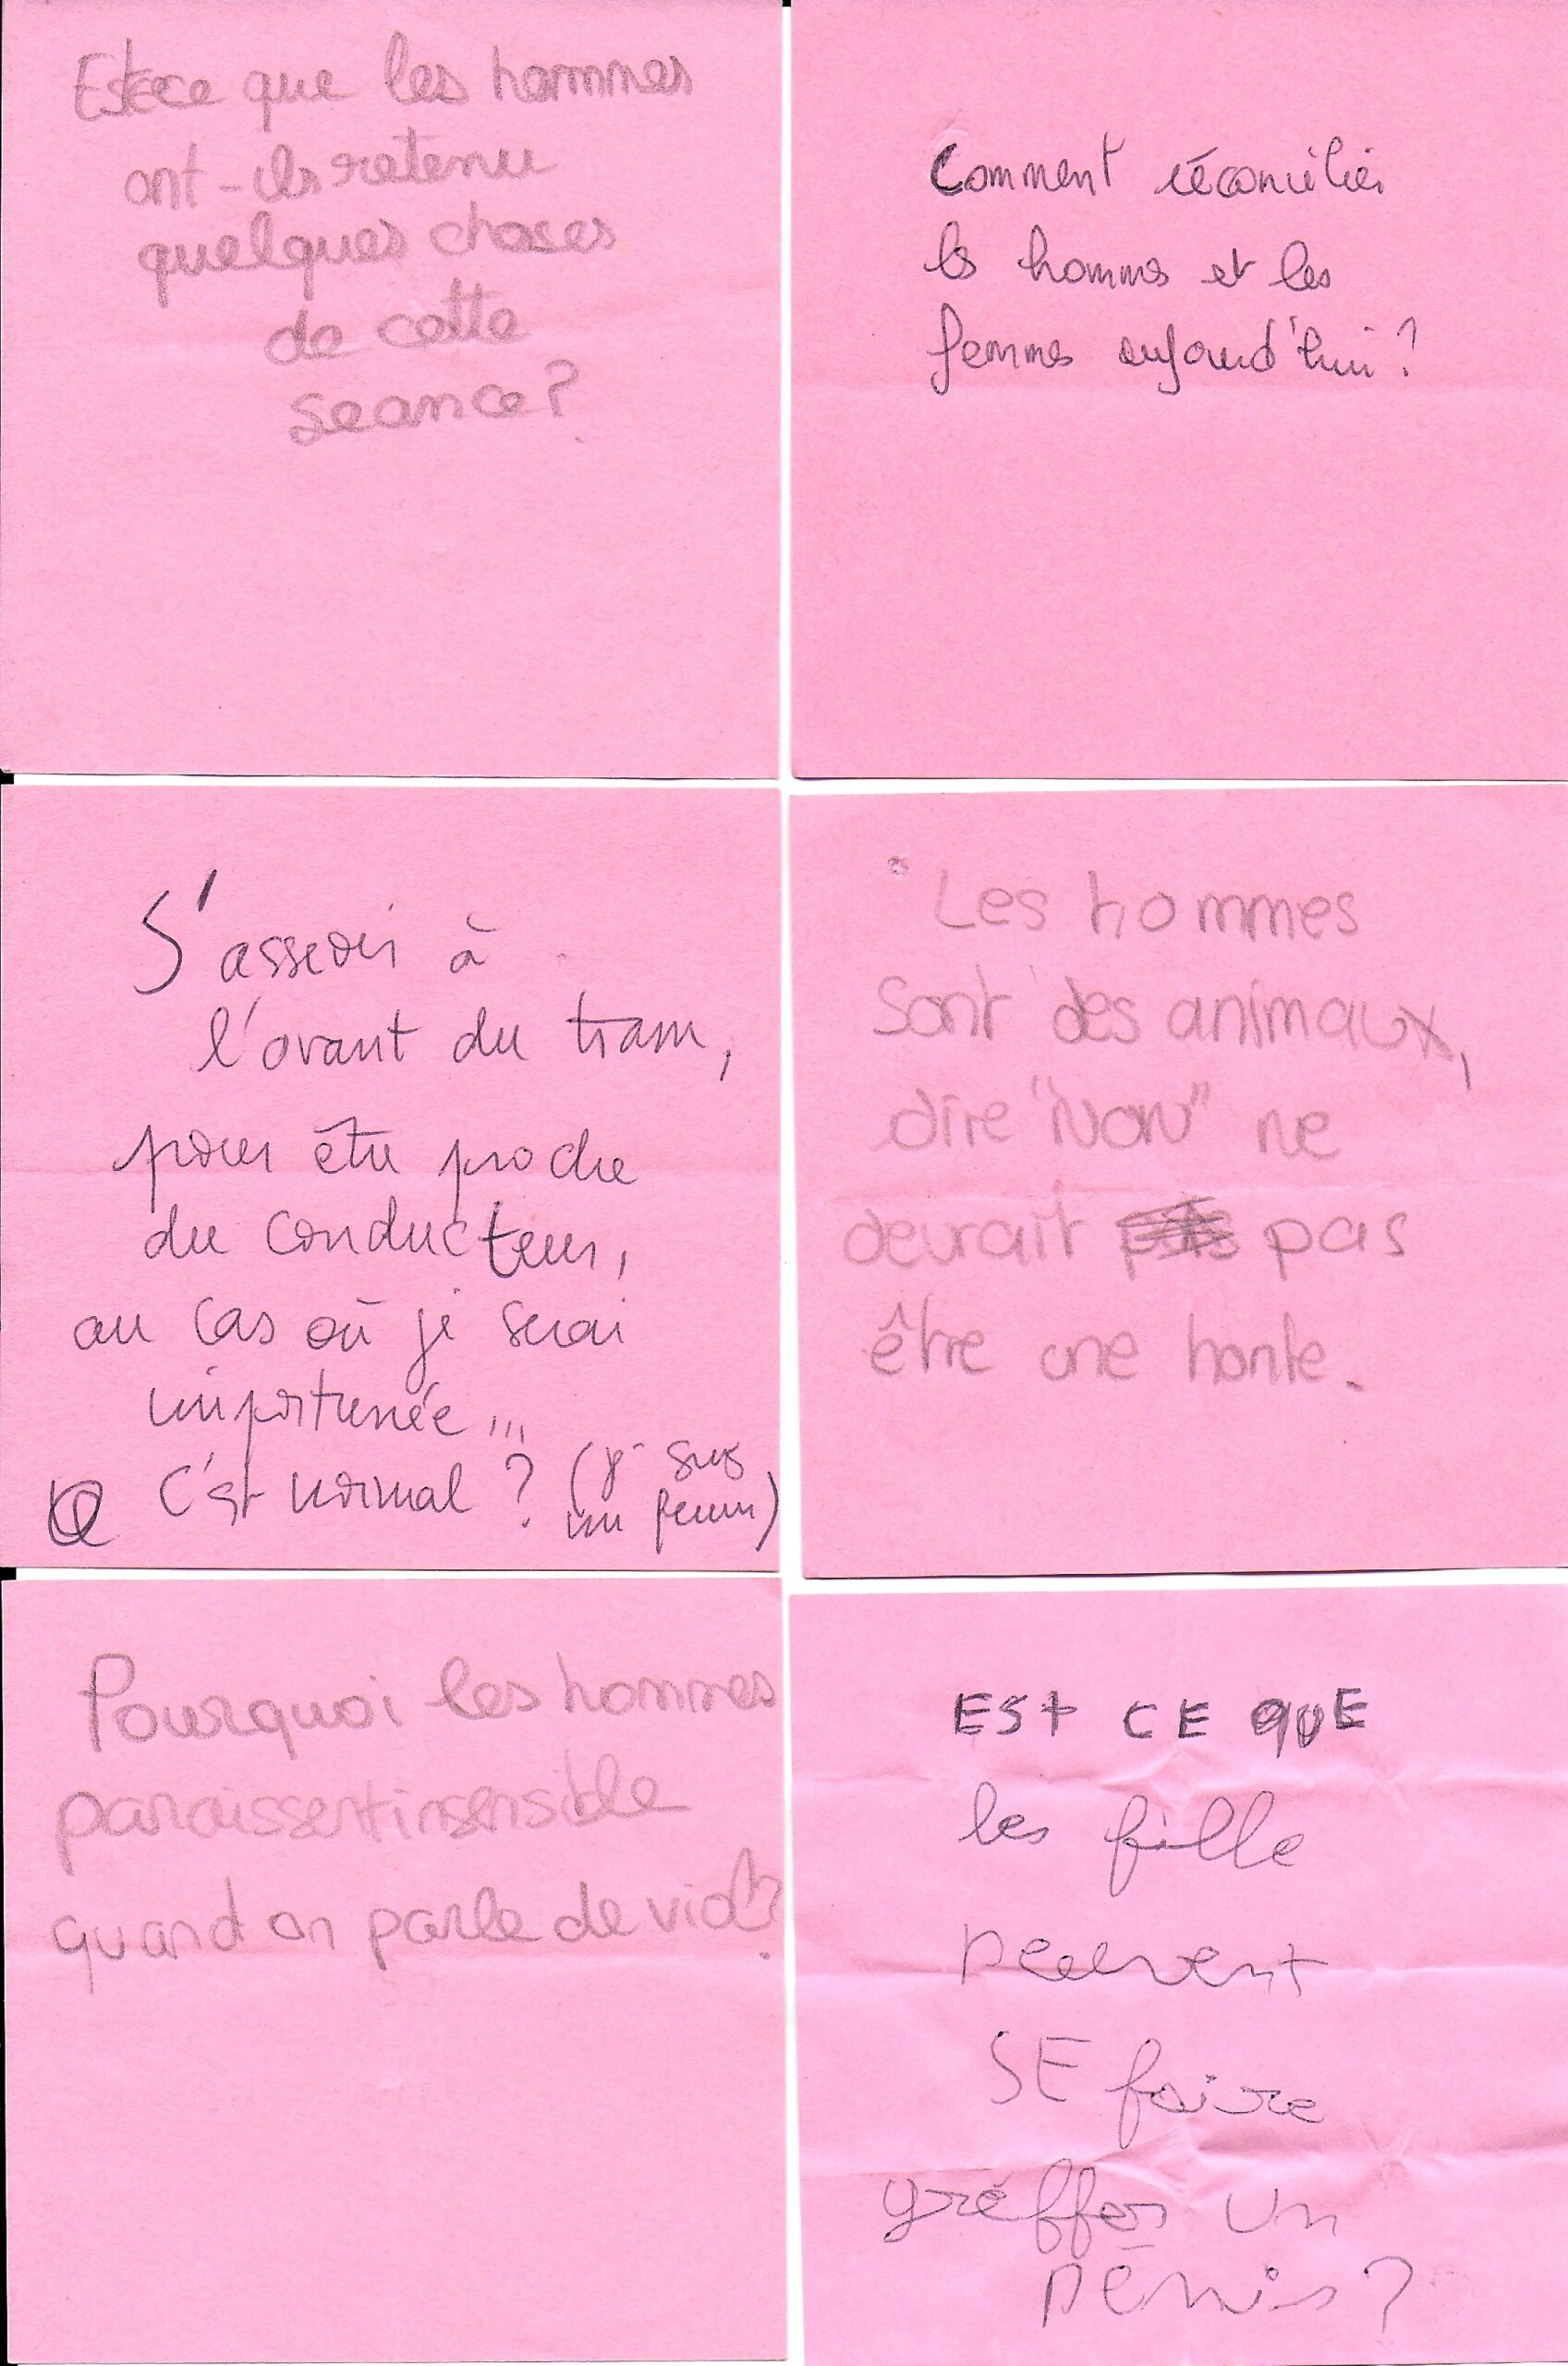 Estce que les hommes
ont-ils retenu
quelques choses
de cette
seance?
Comment réconcilier
les hommes et les
femmes aujourd'hui?
S'asseoir à
l'avant du tram,
pour être proche
du conducteur,
au cas où je serai
importunée...
C'est normal? (je suis
une femme)
Les hommes
sont des animaux,
dire "NON" ne
devrait pas
être une honte.
Pourquoi les hommes
paraissent insensible
quand on parle de viol?
EST CE QUE
les fille
peuvent
SE faire
greffer un
pénis?